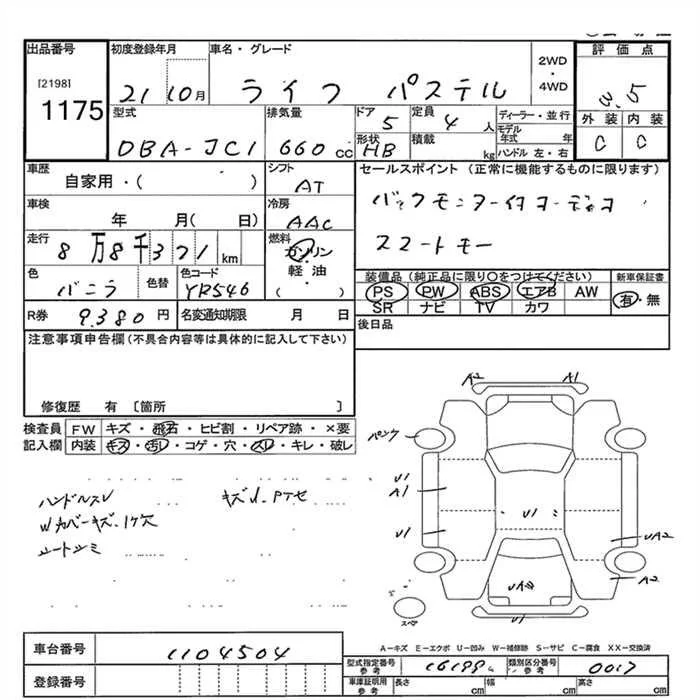 出品番号 初度登録年月 車名・グレード 評価点
[2198] 1175
21 10月 ライフ パステル 2WD・4WD 3.5
型式 排気量 ドア 定員 ディーラー・並行 外装 内装
DBA-JC1 660cc 5 4人 モデル年式 年 C C
形状 HB 積載 kg ハンドル 左・右
車歴 シフト セールスポイント (正常に機能するものに限ります)
自家用・( ) AT
車検 年 月( 日) 冷房 AAC
走行 8万8千371km 燃料 ガソリン・軽油・( )
スマートキー
色 バニラ 色替 色コード YR546
装備品(純正品に限り○をつけてください) 新車保証書
PS PW ABS エアB AW 有・無
SR ナビ TV カワ
R券 9,380円 名変通知期限 月 日 後日品
注意事項申告欄(不具合内容等は具体的に記入して下さい)
修復歴 有 [箇所 ]
検査員 FW キズ・飛石・ヒビ割・リペア跡・×要
記入欄 内装 キズ・汚レ・コゲ・穴・スレ・キレ・破レ
ハンドルスレ キズ
Wカバーキズ
シートシミ
A2 A1
パンク
U1
A1
U1
U1
UA2
A2
スペア
U1
A-キズ E-エクボ U-凹み W-補修跡 S-サビ C-腐食 XX-交換済
車台番号 1104504
型式指定番号 参考 類別区分番号 参考 0017
登録番号 車庫証明用 参考 長さ cm 幅 cm 高さ cm